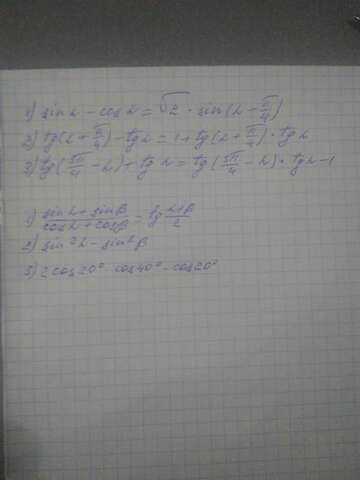 1) sin α - cos α = √2 · sin(α - π/4)
2) tg(α + π/4) - tg α = 1 + tg(α + π/4) · tg α
3) tg(3π/4 - α) + tg α = tg(3π/4 - α) · tg α - 1
1) (sin α + sin β)/(cos α + cos β) = tg (α + β)/2
2) sin² α - sin² β
3) 2 cos 20° cos 40° - cos 20°